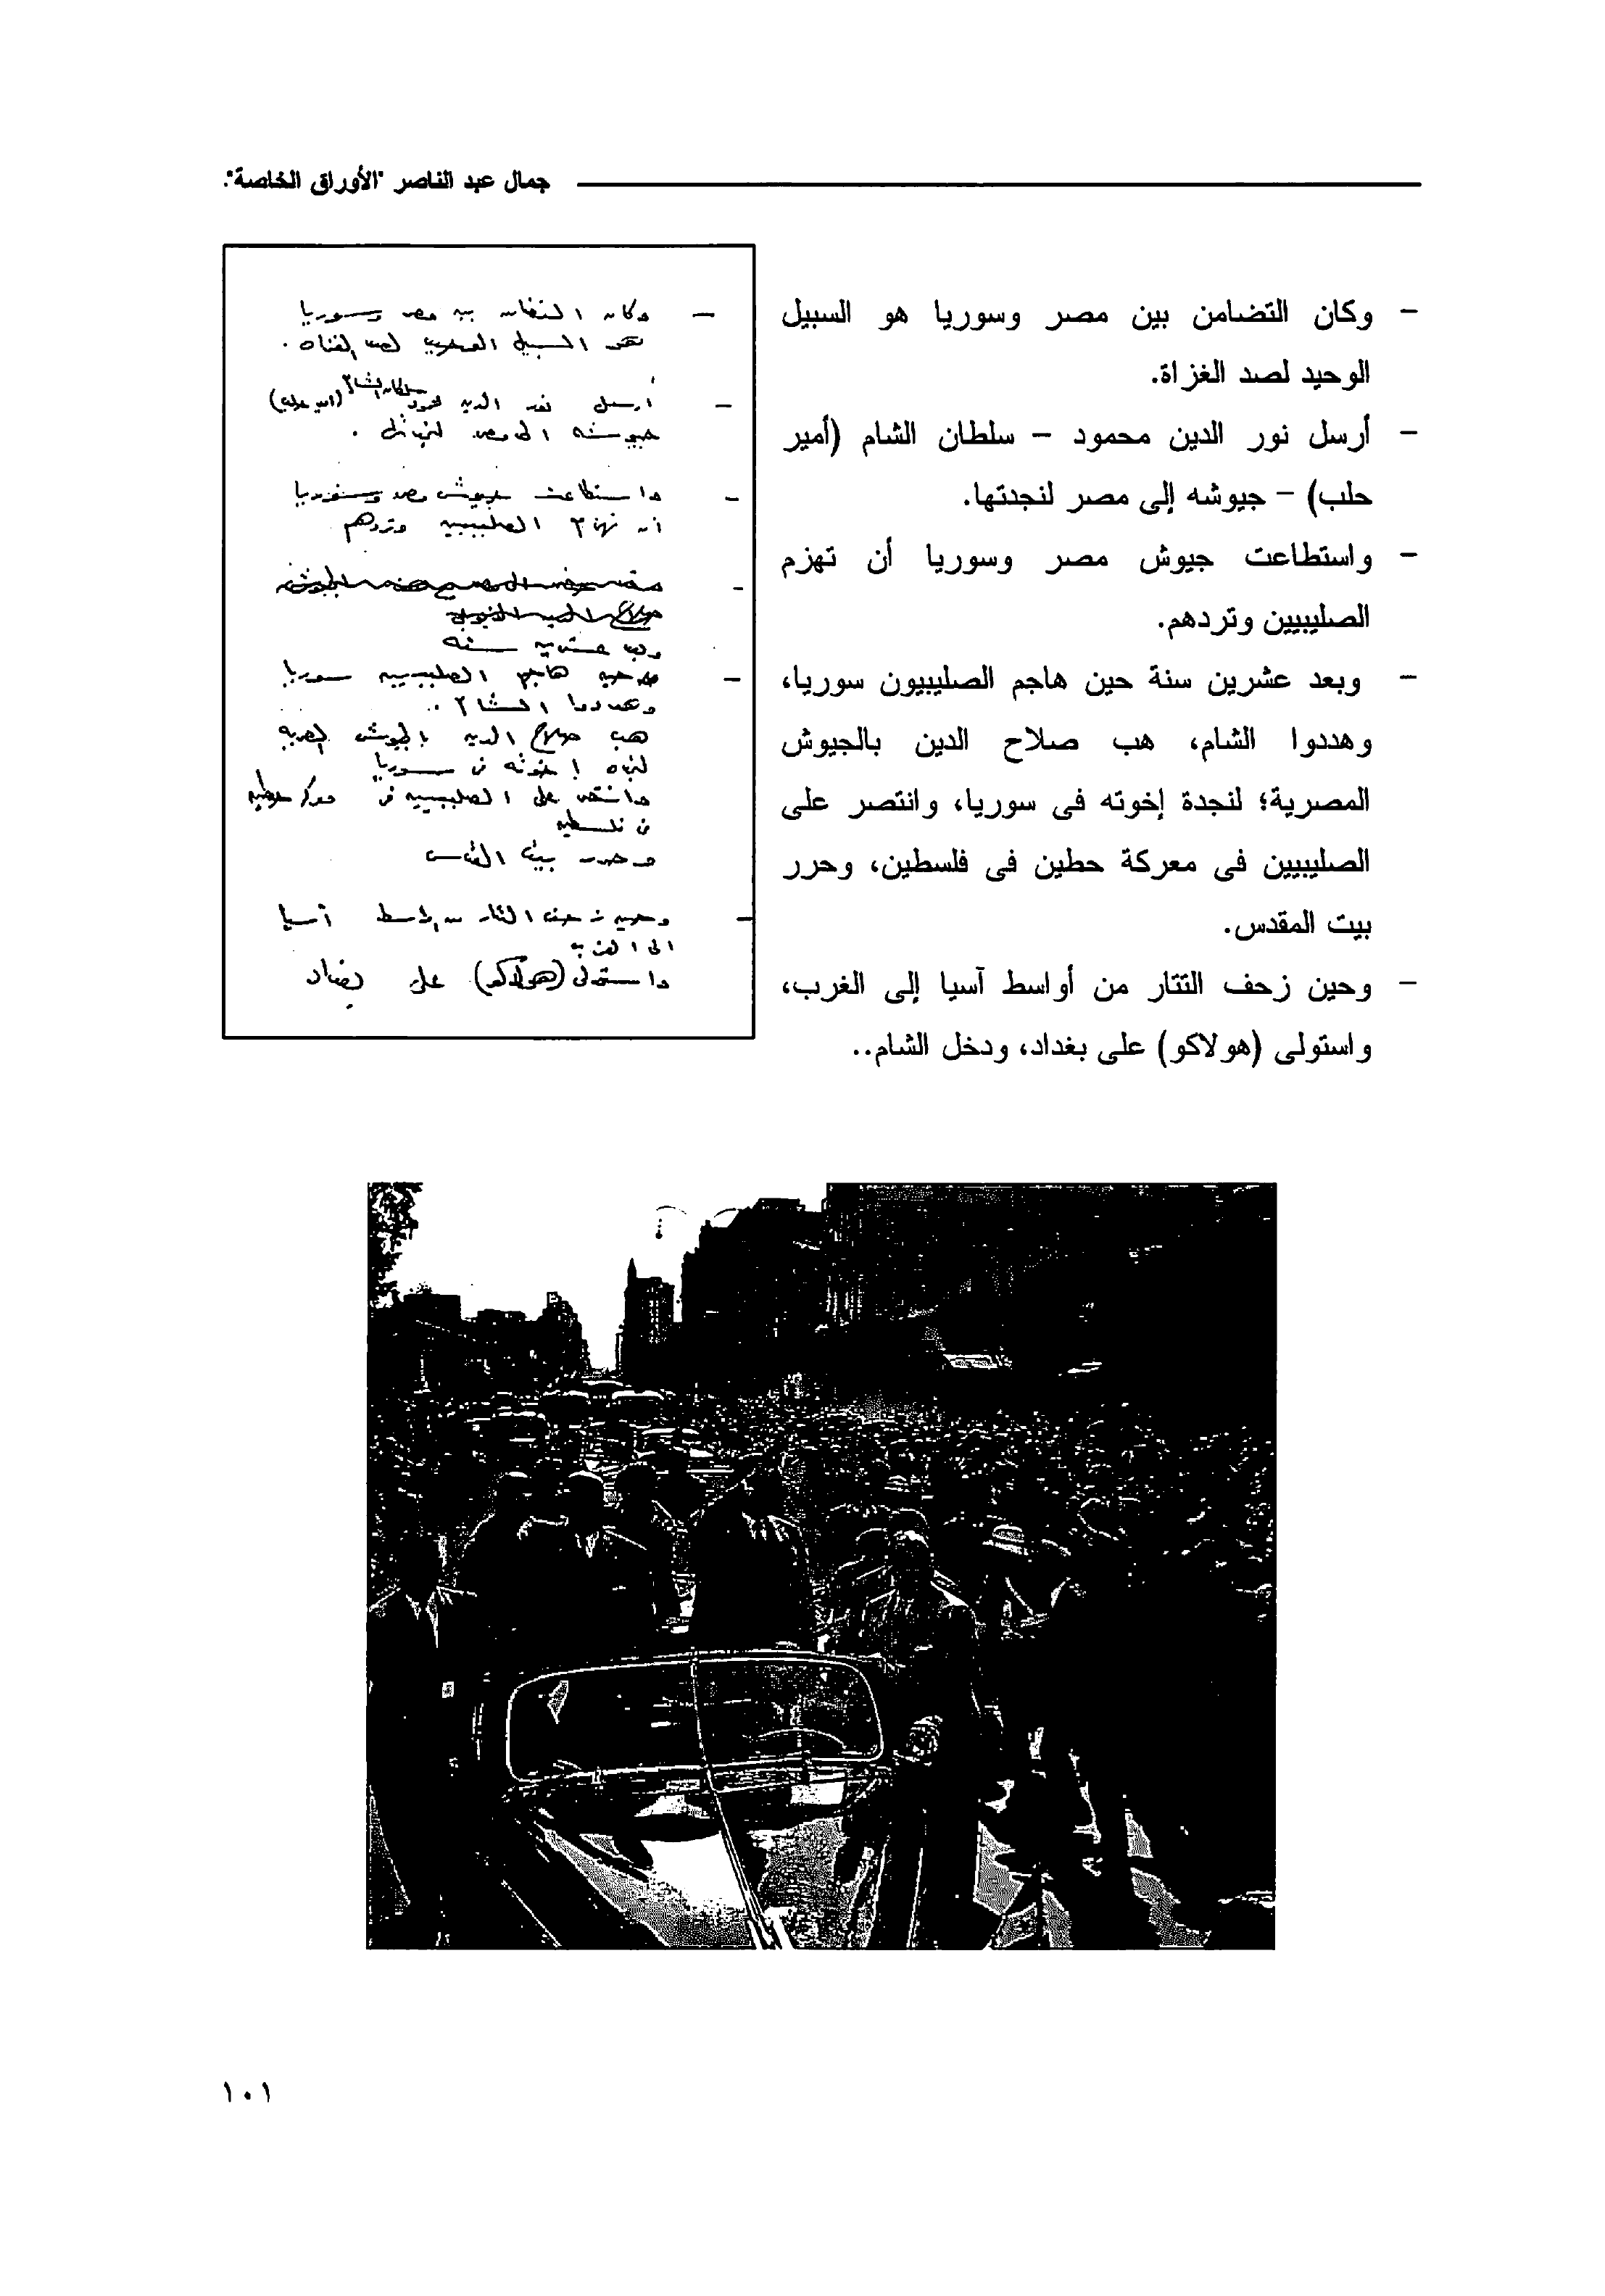 جمال عبد الناصر "الأوراق الخاصة".
- وكان التضامن بين مصر وسوريا هو السبيل
الوحيد لصد الغزاة.
- أرسل نور الدين محمود – سلطان الشام (أمير
حلب) – جيوشه إلى مصر لنجدتها.
- واستطاعت جيوش مصر وسوريا أن تهزم
الصليبيين وتردهم.
- وبعد عشرين سنة حين هاجم الصليبيون سوريا،
وهددوا الشام، هب صلاح الدين بالجيوش
المصرية؛ لنجدة إخوته فى سوريا، وانتصر على
الصليبيين فى معركة حطين فى فلسطين، وحرر
بيت المقدس.
- وحين زحف التتار من أواسط آسيا إلى الغرب،
واستولى (هولاكو) على بغداد، ودخل الشام..
- وكان التضامن بين مصر وسوريا
هو السبيل الوحيد لصد الغزاة.
- أرسل نور الدين محمود سلطان الشام (أمير حلب)
جيوشه الى مصر لنجدتها.
- واستطاعت جيوش مصر وسوريا
أن تهزم الصليبيين وتردهم
-
وبعد عشرين سنة
- حين هاجم الصليبيين سوريا
وهددوا الشام..
هب صلاح الدين بالجيوش المصرية
لنجدة إخوته فى سوريا
وانتصر على الصليبيين فى معركة حطين
فى فلسطين
وحرر بيت المقدس
- وحين زحف التتار من أواسط آسيا
الى الغرب
واستولى (هولاكو) على بغداد
١٠١